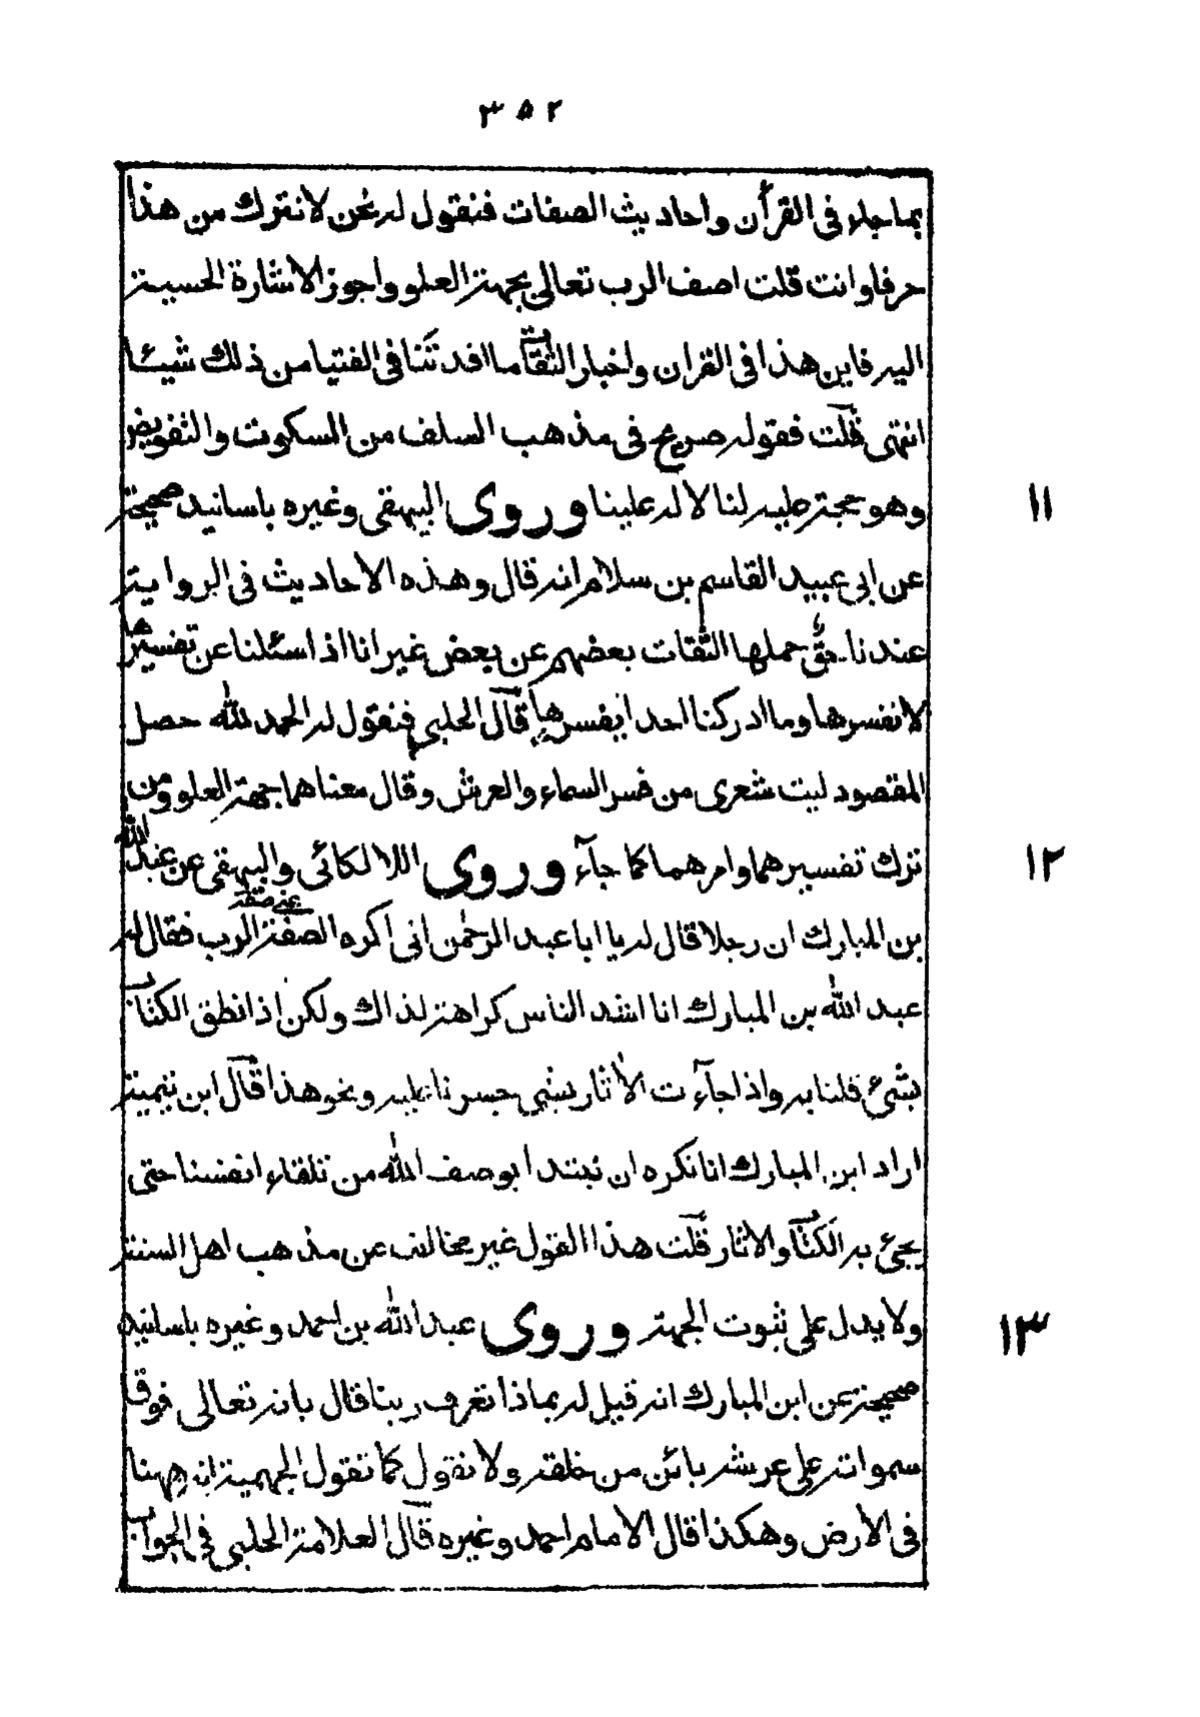 ٣٥٢
بما جاء فى القرآن واحاديث الصفات فنقول له نحن لا نترك من هذا
حرفا وانت قلت اصف الرب تعالى بجهة العلو واجوز الاشارة الحسية
اليه فاين هذا فى القران واخبار الثقات ما افدتنا فى الفتيا من ذلك شيئا
انتهى قلت فقوله صريح فى مذهب السلف من السكوت والتفويض
وهو حجة عليه لنا لا له علينا وروى البيهقى وغيره باسانيد صحيحة
١١
عن ابى عبيد القاسم بن سلام انه قال وهذه الاحاديث فى الرواية
عندنا حق حملها الثقات بعضهم عن بعض غير انا اذا سئلنا عن تفسيرها
لا نفسرها وما ادركنا احدا يفسرها قال الحلبى فنقول له الحمد لله حصل
المقصود ليت شعرى من فسر السماء والعرش وقال معناهما جهة العلو ومن
ترك تفسيرهما وامرهما كما جآء وروى اللالكائى والبيهقى عن عبد الله
١٢
بن المبارك ان رجلا قال له يا ابا عبد الرحمٰن انى اكره الصفة عنى صفة الرب فقال له
عبد الله بن المبارك انا اشد الناس كراهة لذاك ولكن اذا نطق الكتاب
بشىء قلنا به واذا جآءت الاٰثار بشىء جسرنا عليه ونحو هذا قال ابن تيمية
اراد ابن المبارك انا نكره ان نبتدا بوصف الله من تلقاء انفسنا حتى
يجىء به الكتاب والاثار قلت هذا القول غير مخالف عن مذهب اهل السنة
ولا يدل على ثبوت الجهة وروى عبد الله بن احمد وغيره باسانيد
١٣
صحيحة عن ابن المبارك انه قيل له بماذا نعرف ربنا قال بانه تعالى فوق
سمواته على عرشه بائن من خلقه ولا نقول كما تقول الجهمية انه ههنا
فى الارض وهكذا قال الامام احمد وغيره قال العلامة الحلبى فى الجواب